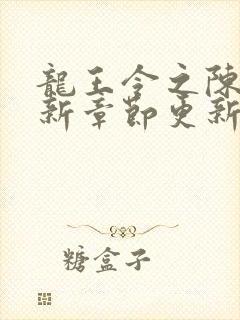 龍王令之陳
新章節更新
糖盒子